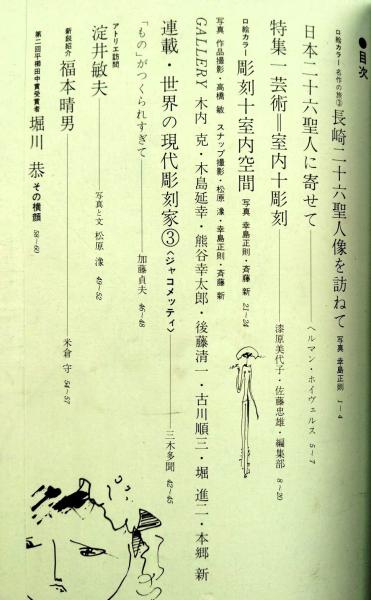 ●目次
口絵カラー 名作の旅③ 長崎二十六聖人像を訪ねて 写真 幸島正則 1~4
日本二十六聖人に寄せて――ヘルマン・ホイヴェルス 5~7
特集―芸術＝室内十彫刻――漆原美代子・佐藤忠雄・編集部 8~20
口絵カラー 彫刻十室内空間 写真 幸島正則・斉藤 新 21~24
写真 作品撮影・高橋 敏 スナップ撮影・松原 濠・幸島正則・斉藤 新
GALLERY 木内 克・木島延幸・熊谷幸太郎・後藤清一・古川順三・堀 進二・本郷 新
連載・世界の現代彫刻家③〈ジャコメッティ〉――三木多聞 42~45
「もの」がつくられすぎて――加藤貞夫 46~48
アトリエ訪問
淀井敏夫――写真と文 松原 濠 49~52
新鋭紹介 福本晴男――米倉 守 54~57
第二回平櫛田中賞受賞者 堀川 恭 その横顔 58~60